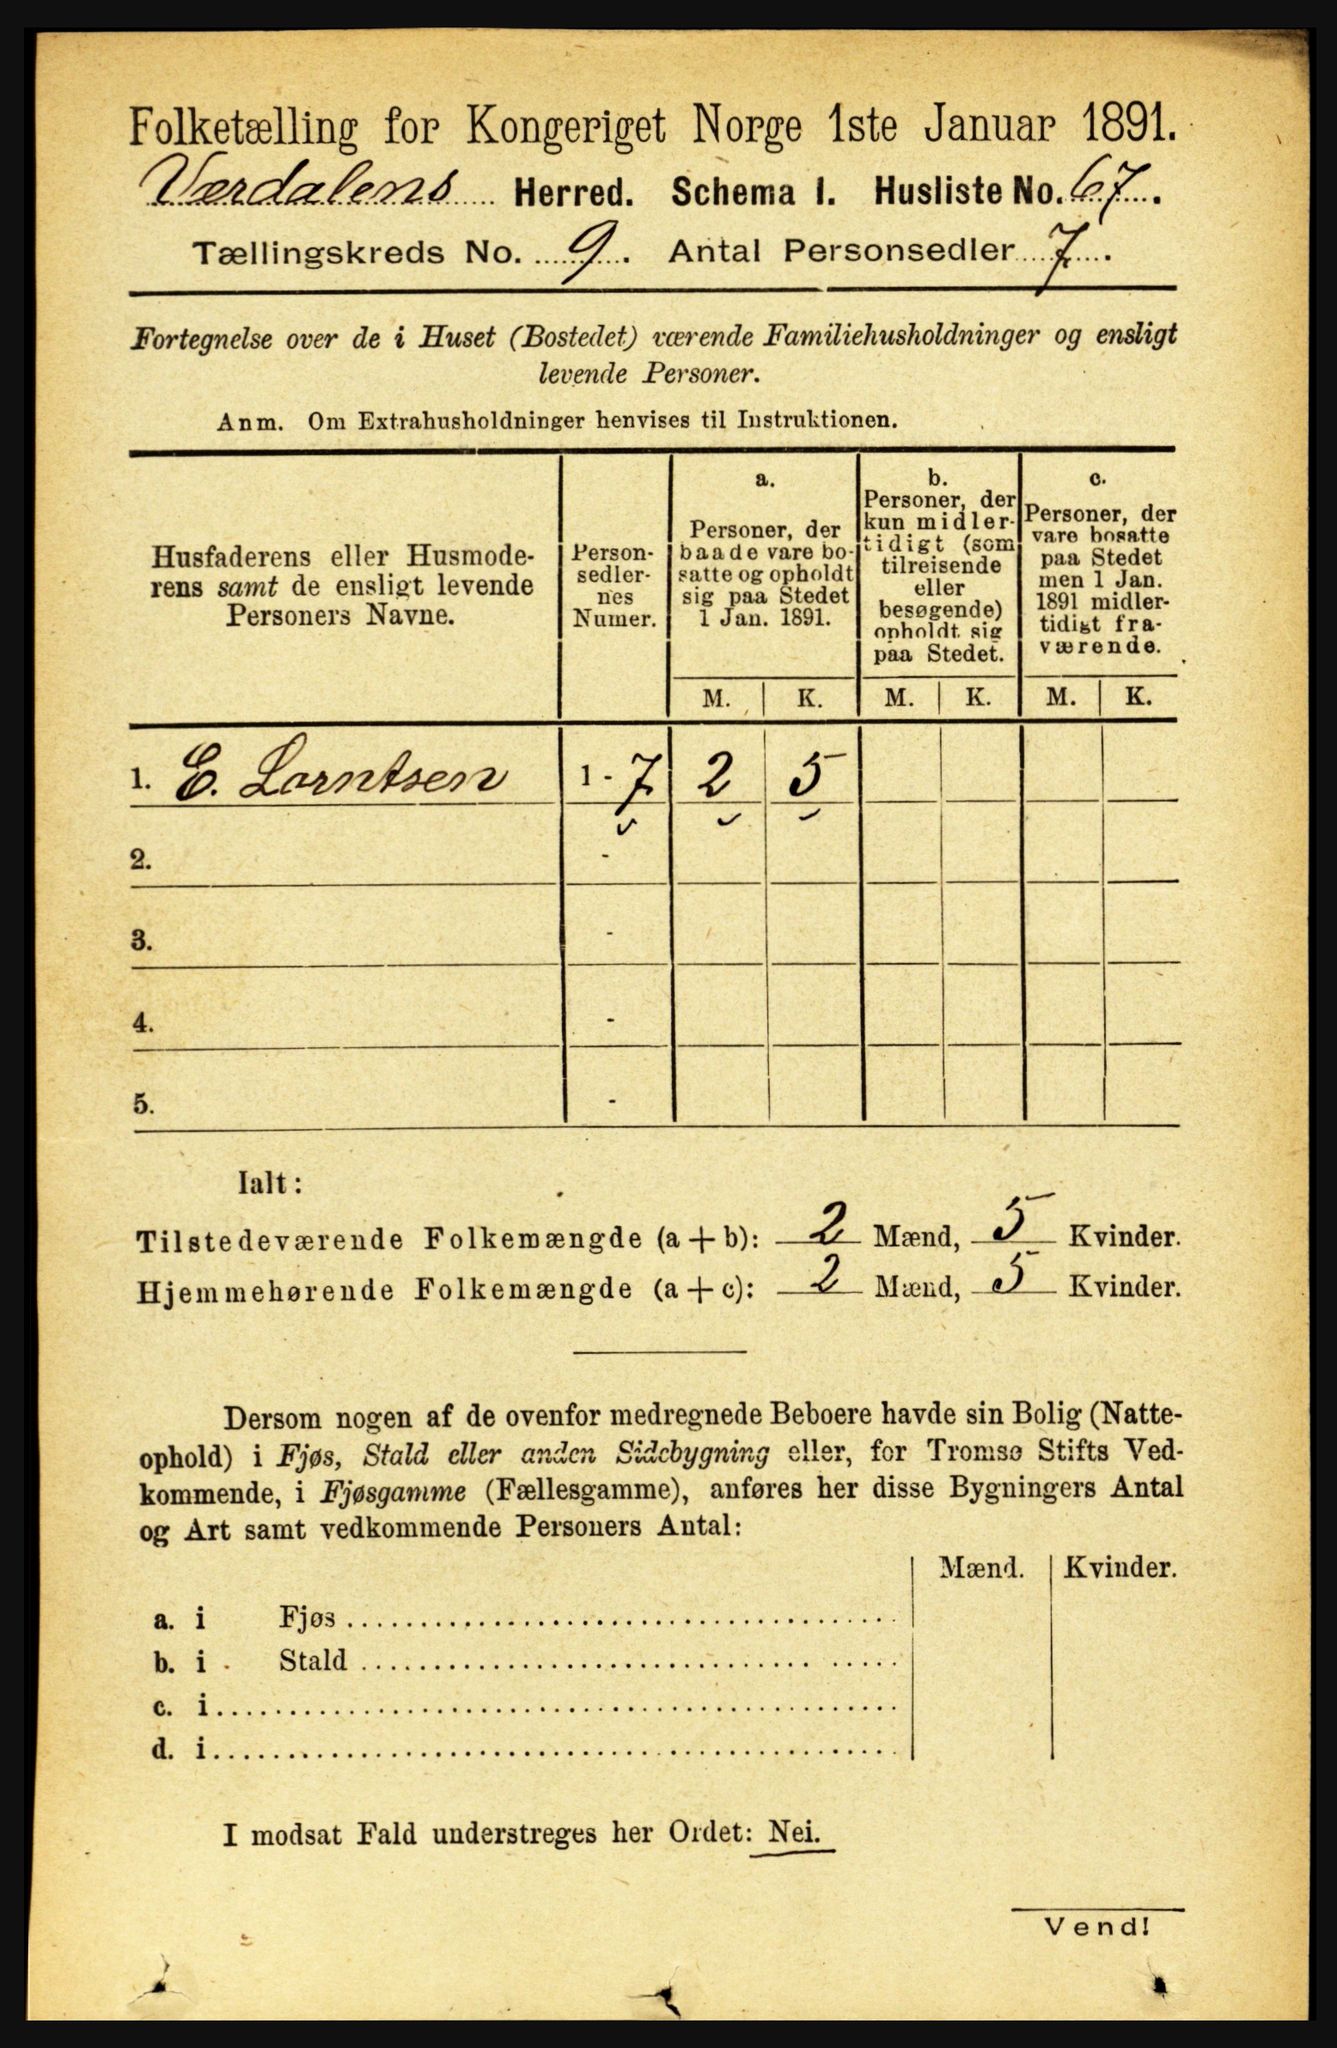 Folketælling for Kongeriget Norge 1ste Januar 1891.
Værdalens Herred. Schema 1. Husliste No. 67.
Tællingskreds No. 9. Antal Personsedler 7.
Fortegnelse over de i Huset (Bostedet) værende Familiehusholdninger og ensligt
levende Personer.
Anm. Om Extrahusholdninger henvises til Instruktionen.
Husfaderens eller Husmode-
rens samt de ensligt levende
Personers Navne.
Person-
sedler-
nes
Numer.
a.
Personer, der
baade vare bo-
satte og opholdt
sig paa Stedet
1 Jan. 1891.
b.
Personer, der
kun midler-
tidigt (som
tilreisende
eller
besøgende)
opholdt sig
paa Stedet.
c.
Personer, der
vare bosatte
paa Stedet
men 1 Jan.
1891 midler-
tidigt fra-
værende.
M. K. M. K. M. K.
1. E. Lorntsen 1 - 7 2 5
2. -
3. -
4. -
5. -
Ialt:
Tilstedeværende Folkemængde (a + b): 2 Mænd, 5 Kvinder.
Hjemmehørende Folkemængde (a + c): 2 Mænd, 5 Kvinder.
Dersom nogen af de ovenfor medregnede Beboere havde sin Bolig (Natte-
ophold) i Fjøs, Stald eller anden Sidebygning eller, for Tromsø Stifts Ved-
kommende, i Fjøsgamme (Fællesgamme), anføres her disse Bygningers Antal
og Art samt vedkommende Personers Antal:
Mænd. Kvinder.
a. i Fjøs
b. i Stald
c. i
d. i
I modsat Fald understreges her Ordet: Nei.
Vend!